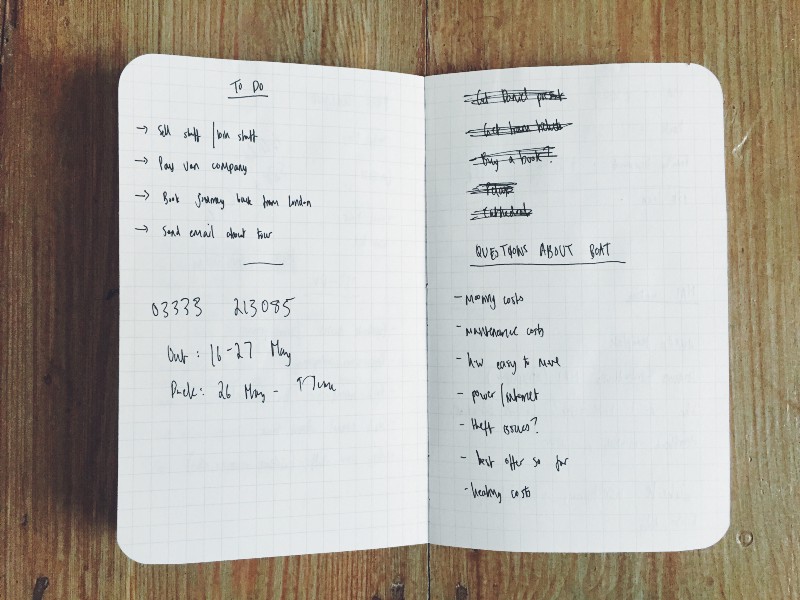 TO DO
→ Sell stuff / bin stuff
→ Pay van company
→ Book journey back from London
→ Send email about tour
03333 213085
Out: 16-27 May
Back: 26 May - June
Get Daniel present
Buy a book?
Cathedral
QUESTIONS ABOUT BOAT
- Mooring costs
- maintenance costs
- how easy to move
- power/internet
- theft issues?
- best offer so far
- heating costs